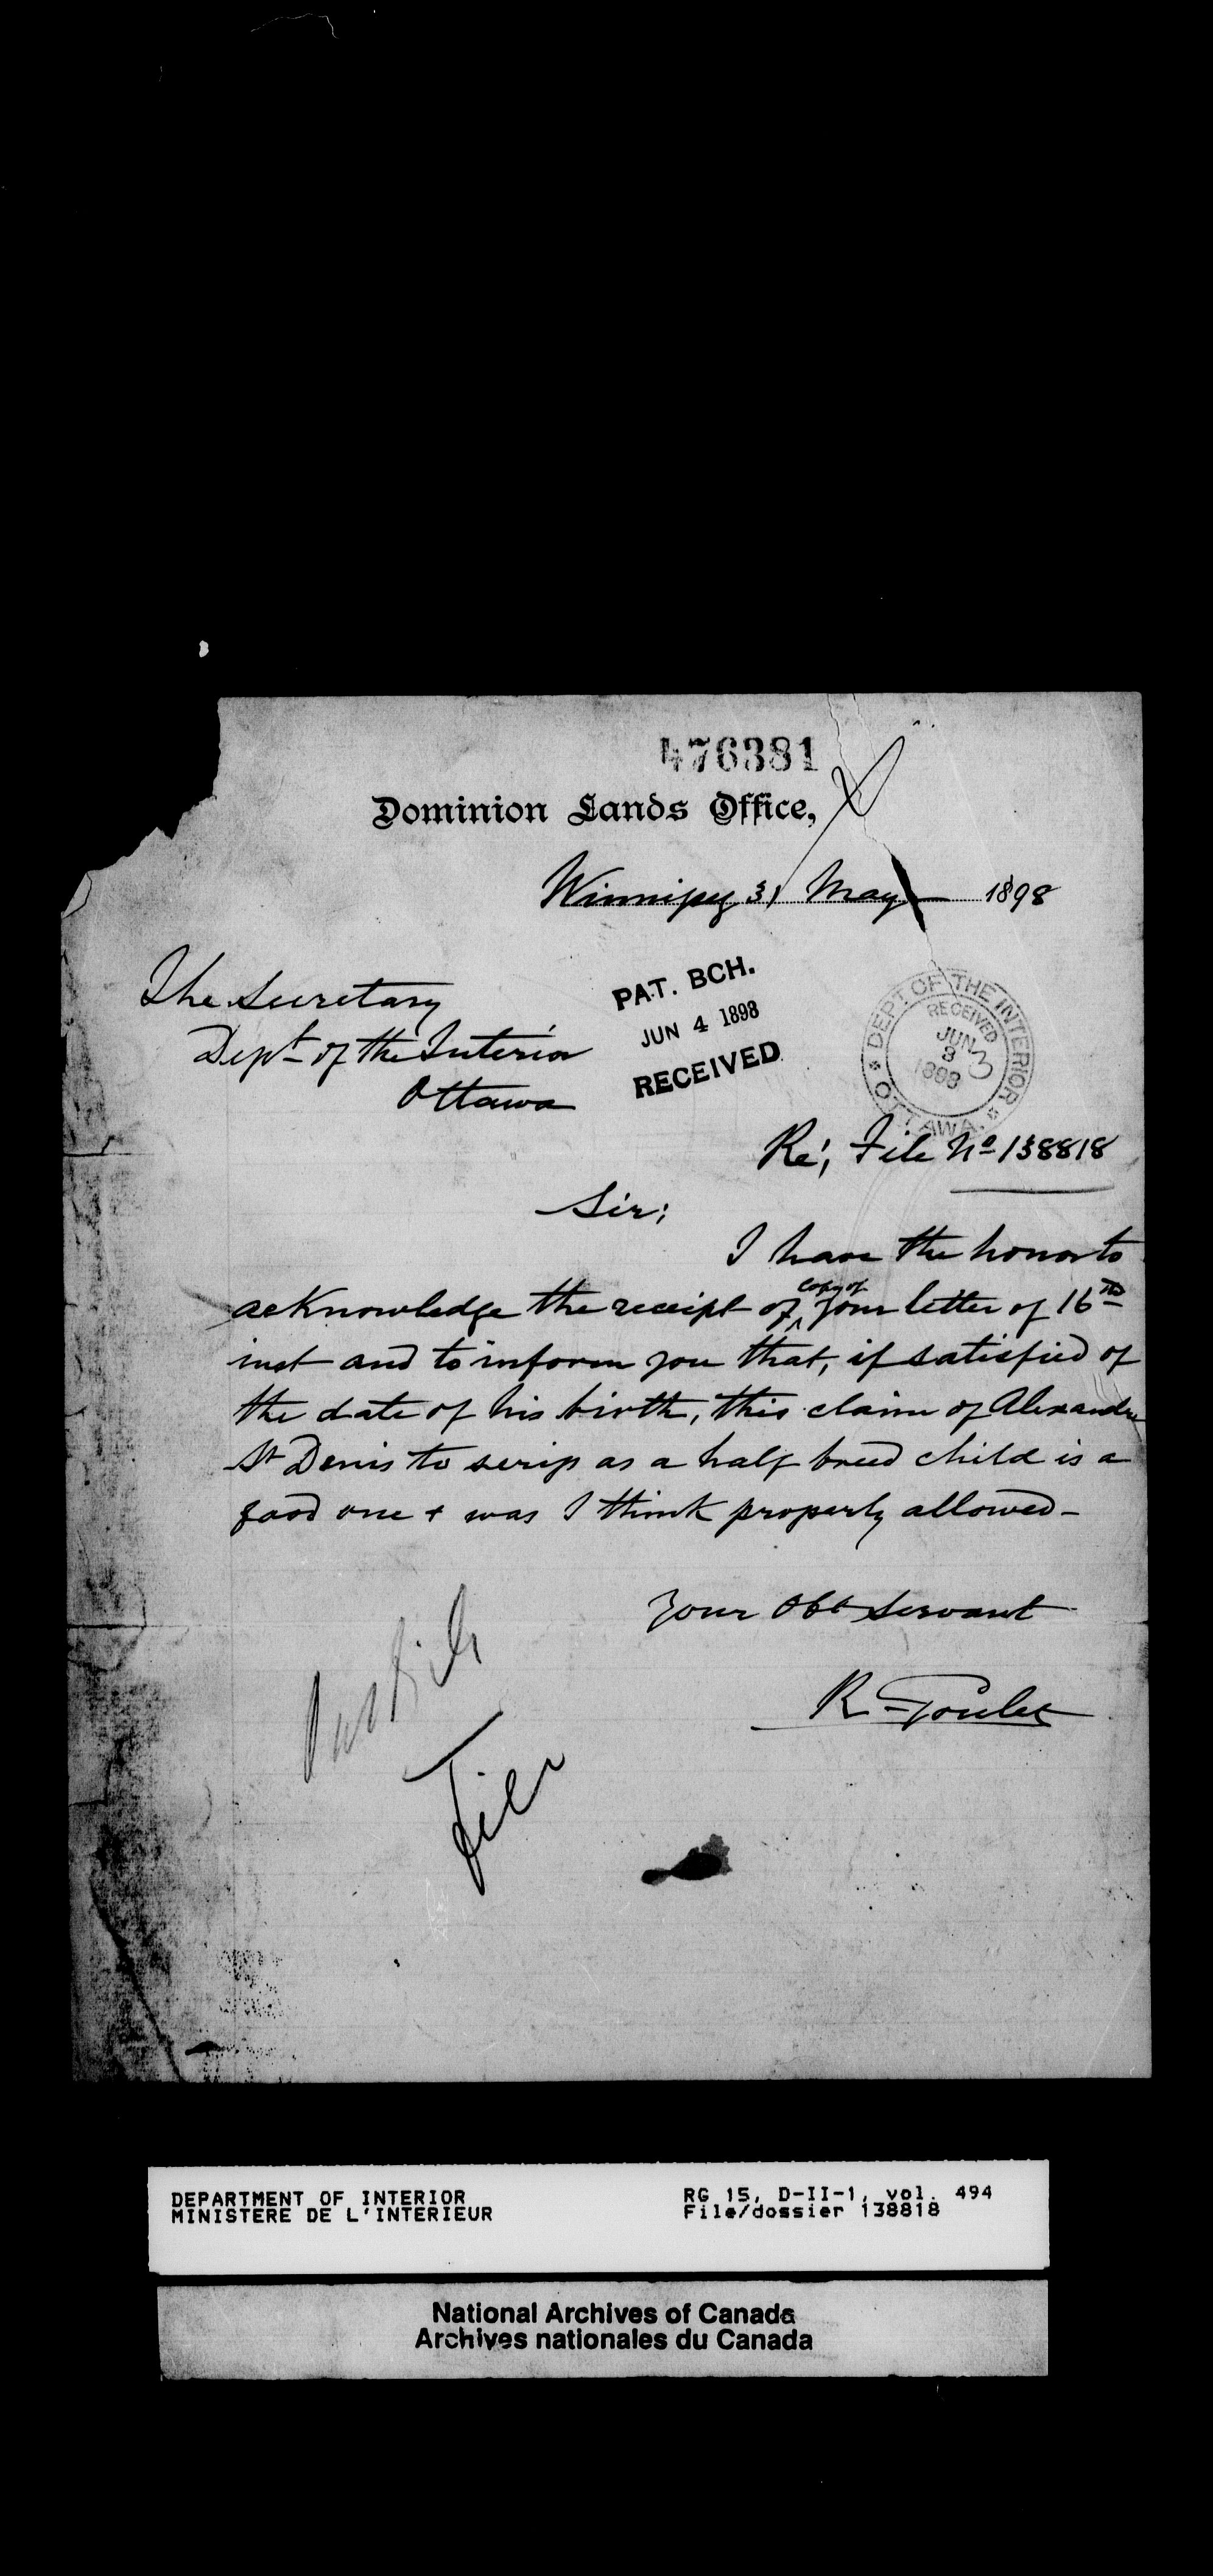 476381
Dominion Lands Office,
Winnipeg 31 May 1898
The Secretary
Dept of the Interior
Ottawa
PAT. BCH.
JUN 4 1898
RECEIVED
DEPT OF THE INTERIOR
RECEIVED
JUN 3
1898
OTTAWA.
Re', File No 138818
Sir;
I have the honor to
acknowledge the receipt of copy of your letter of 16th
inst and to inform you that, if satisfied of
the date of his birth, this claim of Alexandre
St Denis to scrip as a half breed child is a
good one + was I think properly allowed -
Your Obt servant
R Goulet
File
DEPARTMENT OF INTERIOR
MINISTERE DE L'INTERIEUR
RG 15, D-II-1, vol. 494
File/dossier 138818
National Archives of Canada
Archives nationales du Canada